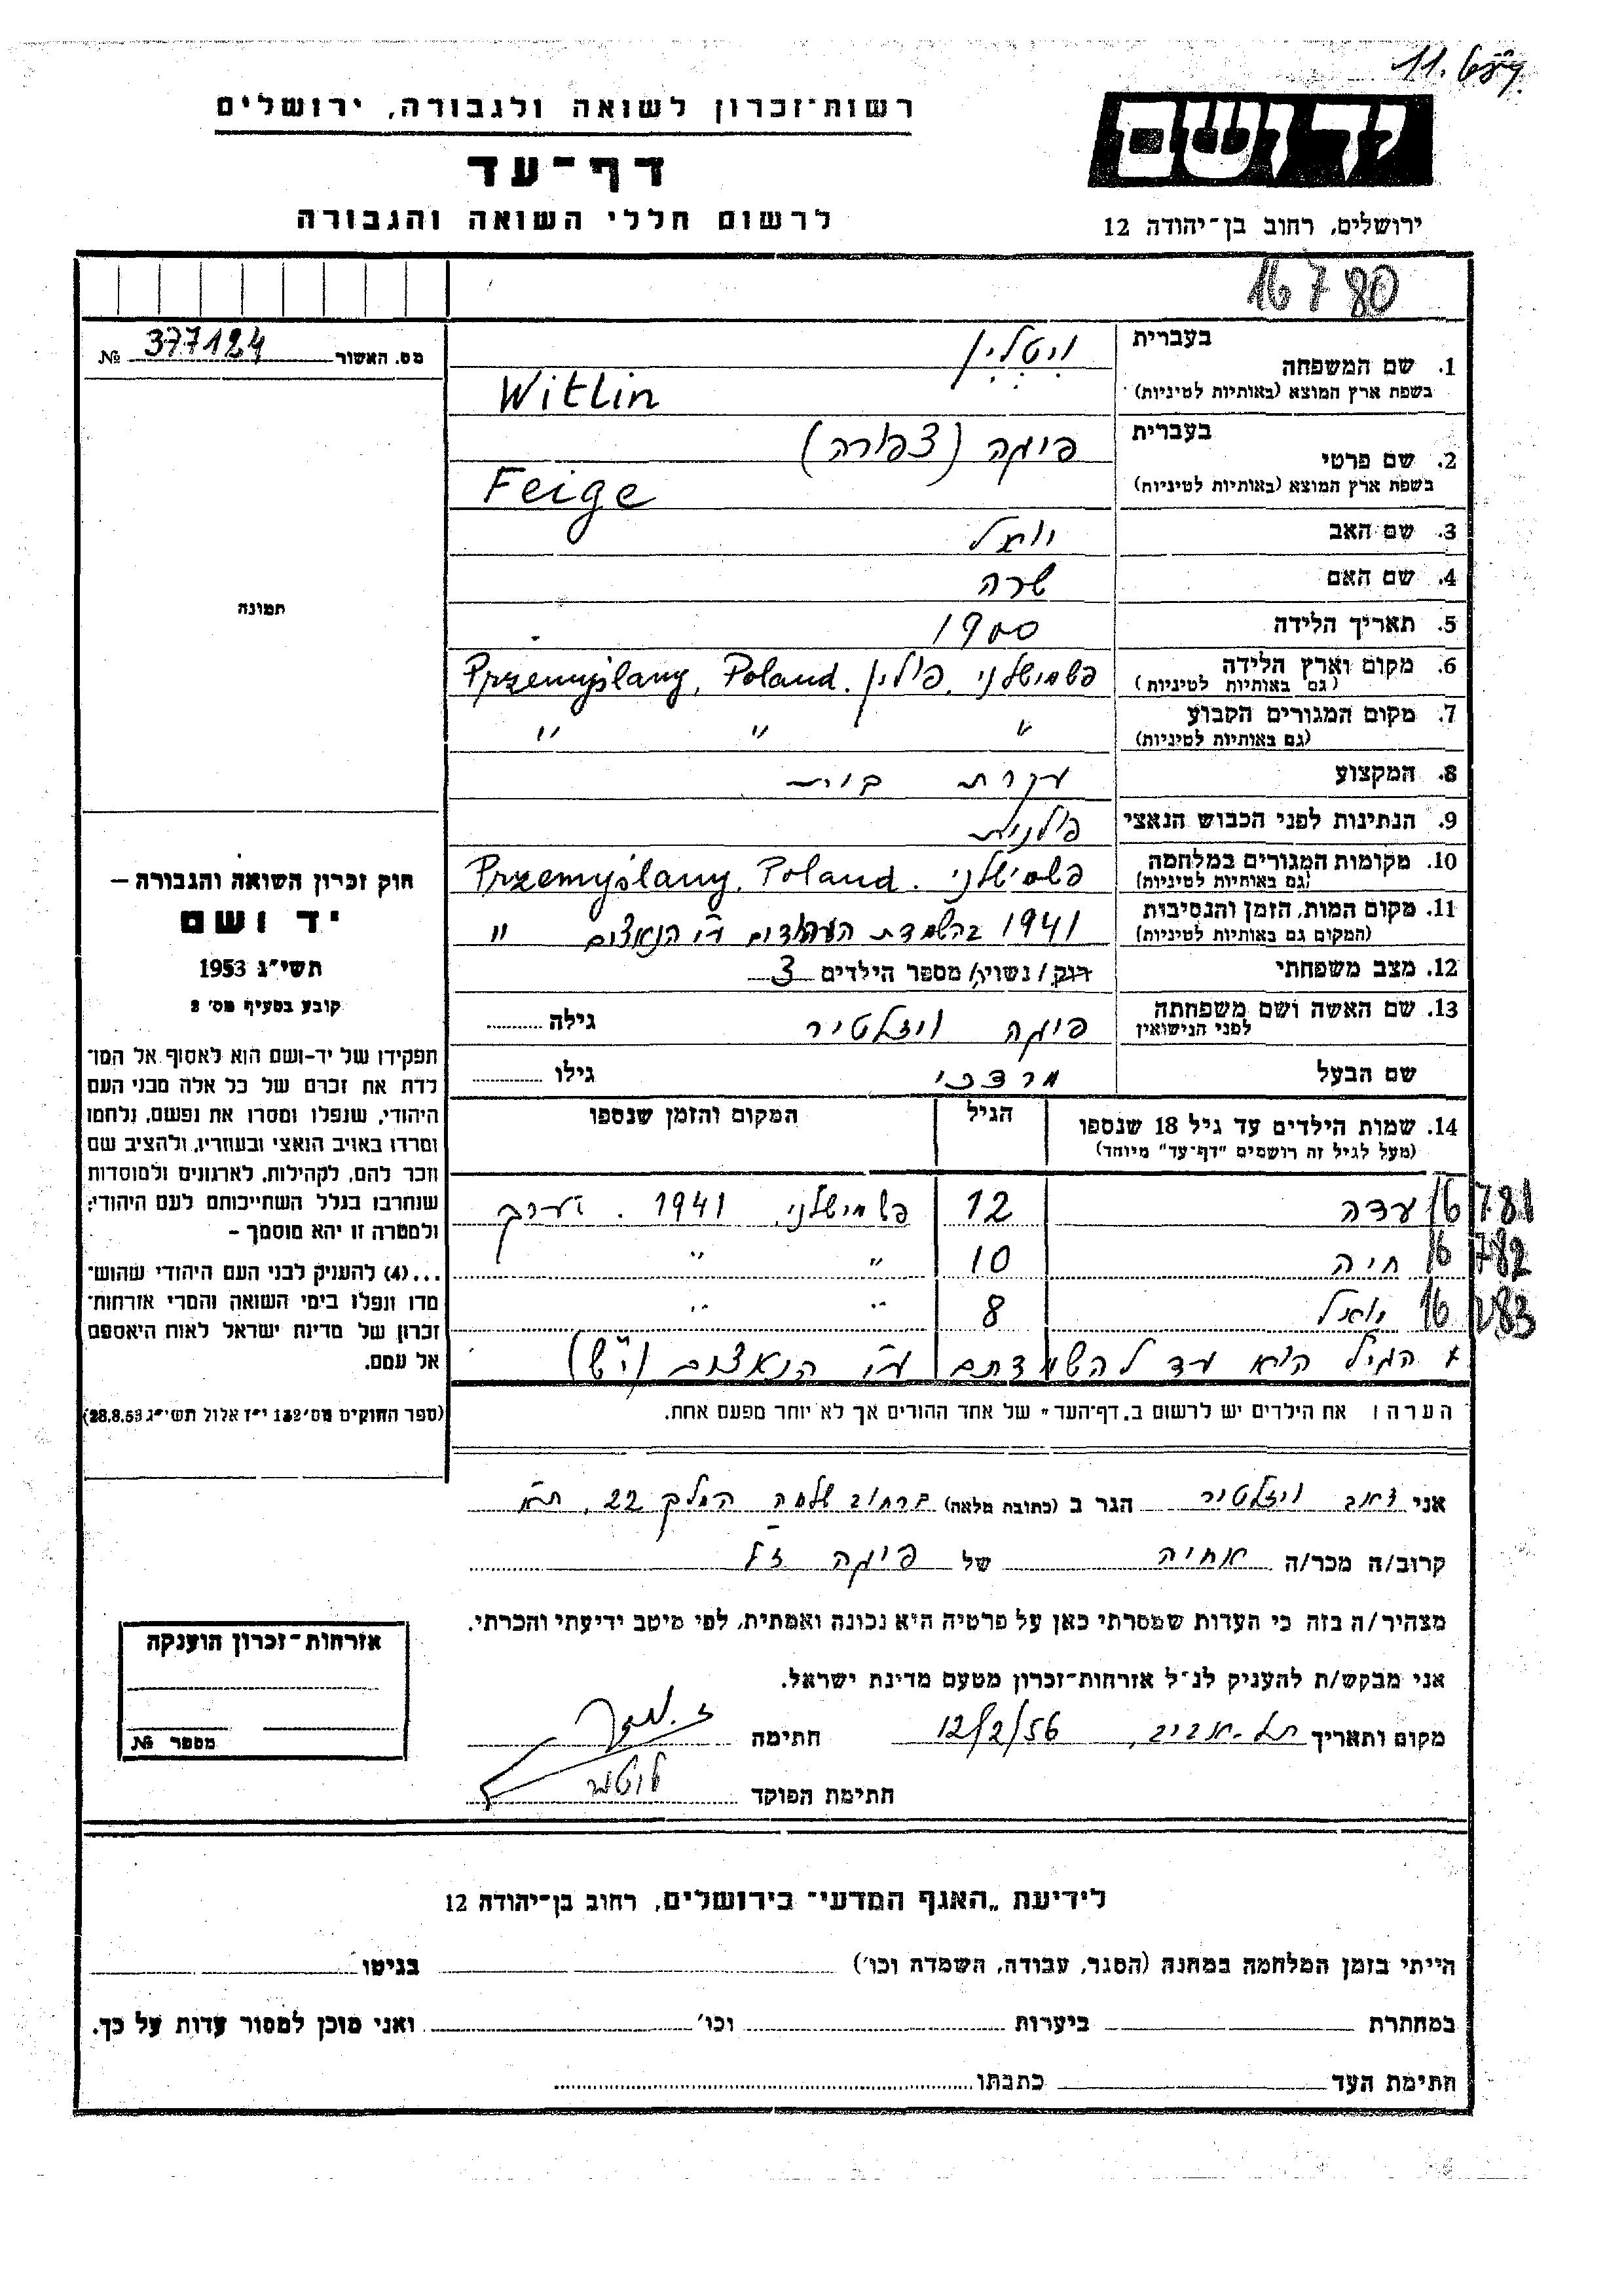 רשות־זכרון לשואה ולגבורה, ירושלים
דף־עד
לרשום חללי השואה והגבורה
יד ושם
ירושלים, רחוב בן־יהודה 12
16780
מס. האשור 377124 №
1. שם המשפחה
בעברית ויטלין
בשפת ארץ המוצא (באותיות לטיניות) Witlin
2. שם פרטי
בעברית פיגה (צפורה)
בשפת ארץ המוצא (באותיות לטיניות) Feige
3. שם האב יואל
4. שם האם שרה
5. תאריך הלידה 1900
6. מקום וארץ הלידה פשמישלני, פולין. Przemyślany, Poland
(גם באותיות לטיניות)
7. מקום המגורים הקבוע " " "
(גם באותיות לטיניות)
8. המקצוע עקרת בית
9. הנתינות לפני הכבוש הנאצי פולנית
10. מקומות המגורים במלחמה פשמישלני. Przemyślany, Poland
(גם באותיות לטיניות)
11. מקום המות, הזמן והנסיבות 1941 בהשמדת היהודים ע"י הנאצים "
(המקום גם באותיות לטיניות)
12. מצב משפחתי רווק/ נשוי/ מספר הילדים 3
13. שם האשה ושם משפחתה פיגה ויזלטיר גילה
לפני הנישואין
שם הבעל מרדכי גילו
14. שמות הילדים עד גיל 18 שנספו הגיל המקום והזמן שנספו
(מעל לגיל זה רושמים "דף־עד" מיוחד)
16781 עדה 12 פשמישלני, 1941.
16782 חיה 10 " "
16783 יואל 8 " "
x הגיל הוא עד להשמדתם ע"י הנאצים (י"ש)
הערה: את הילדים יש לרשום ב„דף־העד" של אחד ההורים אך לא יותר מפעם אחת.
תמונה
חוק זכרון השואה והגבורה –
יד ושם
תשי"ג 1953
קובע בסעיף מס' 2
תפקידו של יד-ושם הוא לאסוף אל המו־
לדת את זכרם של כל אלה מבני העם
היהודי, שנפלו ומסרו את נפשם, נלחמו
ומרדו באויב הנאצי ובעוזריו, ולהציב שם
וזכר להם, לקהילות, לארגונים ולמוסדות
שנחרבו בגלל השתייכותם לעם היהודי;
ולמטרה זו יהא מוסמך –
...(4) להעניק לבני העם היהודי שהוש־
מדו ונפלו בימי השואה והמרי אזרחות־
זכרון של מדינת ישראל לאות היאספם
אל עמם.
(ספר החוקים מס' 132 י"ז אלול תשי"ג 28.8.53)
אני זאב ויזלטיר הגר ב (כתובת מלאה) ברחוב שלמה המלך 22, ת"א
קרוב/ה מכר/ה אחיה של פיגה ז"ל
מצהיר/ה בזה כי העדות שמסרתי כאן על פרטיה היא נכונה ואמתית, לפי מיטב ידיעתי והכרתי.
אני מבקש/ת להעניק לנ"ל אזרחות־זכרון מטעם מדינת ישראל.
מקום ותאריך תל-אביב, 12/2/56 חתימה
חתימת הפוקד
אזרחות־זכרון הוענקה
מספר №
לידיעת „האגף המדעי" בירושלים, רחוב בן־יהודה 12
הייתי בזמן המלחמה במחנה (הסגר, עבודה, השמדה וכו') בגיטו
במחתרת ביערות וכו' ואני מוכן למסור עדות על כך.
חתימת העד כתבתו